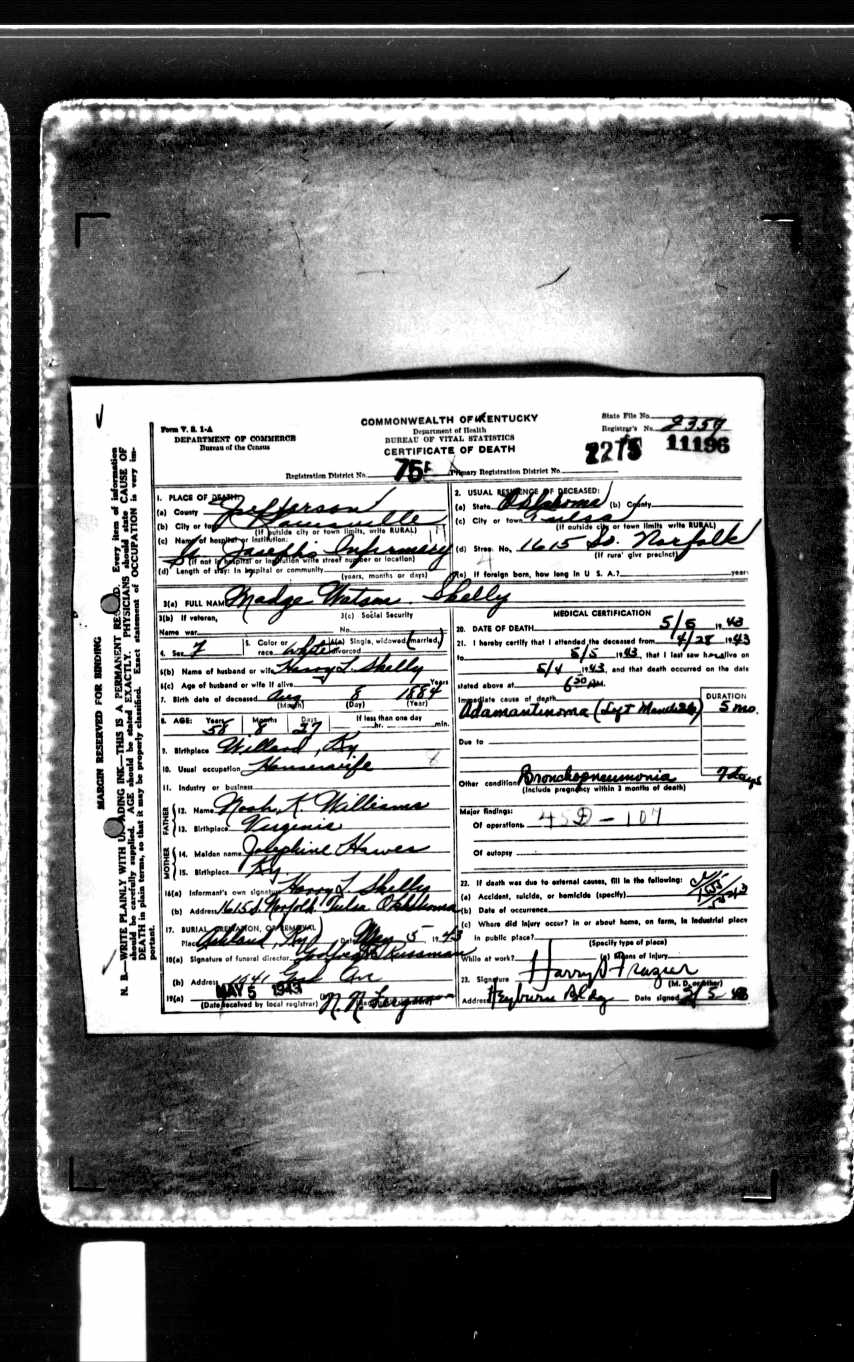 N. B.—WRITE PLAINLY WITH UNFADING INK—THIS IS A PERMANENT RECORD. Every item of information
should be carefully supplied. AGE should be stated EXACTLY. PHYSICIANS should state CAUSE OF
DEATH in plain terms, so that it may be properly classified. Exact statement of OCCUPATION is very im-
portant.
MARGIN RESERVED FOR BINDING
Form V. S. 1-A
DEPARTMENT OF COMMERCE
Bureau of the Census
COMMONWEALTH OF KENTUCKY
Department of Health
BUREAU OF VITAL STATISTICS
CERTIFICATE OF DEATH
State File No.
Registrar's No. 2359
2275 11196
Registration District No. 755 Primary Registration District No.
1. PLACE OF DEATH:
(a) County Jefferson
(b) City or town Louisville
(If outside city or town limits, write RURAL)
(c) Name of hospital or institution:
St Joseph's Infirmary
(If not in hospital or institution write street number or location)
(d) Length of stay: In hospital or community
(years, months or days)
2. USUAL RESIDENCE OF DECEASED:
(a) State Oklahoma (b) County
(c) City or town Tulsa
(If outside city or town limits write RURAL)
(d) Street No. 1615 So. Norfolk
(If rural give precinct)
(e) If foreign born, how long in U. S. A.? years
3(a) FULL NAME Madge Watson Shelly
3(b) If veteran,
Name war
3(c) Social Security
No.
4. Sex F
5. Color or
race white
6(a) Single, widowed, married,
divorced
6(b) Name of husband or wife Harry L. Shelly
6(c) Age of husband or wife if alive Years
7. Birth date of deceased Aug 8 1884
(Month) (Day) (Year)
8. AGE: Years Months Days If less than one day
58 8 27 hr. min.
9. Birthplace Willard, Ky
10. Usual occupation Housewife
11. Industry or business
FATHER
12. Name Noah K. Williams
13. Birthplace Virginia
MOTHER
14. Maiden name Josephine Hawes
15. Birthplace Ky
16(a) Informant's own signature Harry L Shelly
(b) Address 1615 S. Norfolk Tulsa Oklahoma
17. BURIAL, CREMATION, OR REMOVAL
Place Ashland, Ky Date May 5, 1943
18(a) Signature of funeral director
(b) Address 1041 Ave
19(a) MAY 5 1943
(Date received by local registrar)
MEDICAL CERTIFICATION
20. DATE OF DEATH 5/5 1943
21. I hereby certify that I attended the deceased from 4/28 1943
to 5/5 1943, that I last saw her alive on
5/4 1943, and that death occurred on the date
stated above at 6 30 AM.
Immediate cause of death
DURATION
Adamantinoma (Lft Mandible) 5 mo.
Due to
Other condition Bronchopneumonia 7 days
(Include pregnancy within 3 months of death)
Major findings:
Of operations 45D-107
Of autopsy
22. If death was due to external causes, fill in the following:
(a) Accident, suicide, or homicide (specify)
(b) Date of occurrence
(c) Where did injury occur? in or about home, on farm, in industrial place
in public place?
(Specify type of place)
While at work? (e) Means of injury
23. Signature Harry D Frazier
(M. D. or other)
Address Heyburn Bldg Date signed 5 43